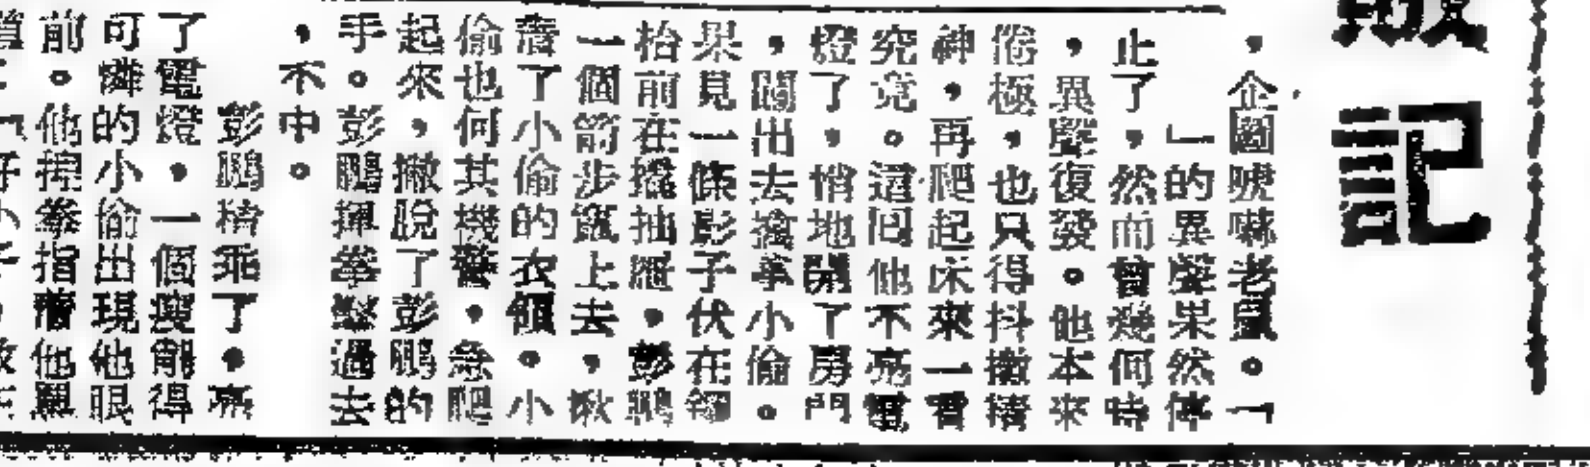 記
，企圖唬嚇老鼠。「
」的異聲果然停
止了，然而曾幾何時
，異聲復發。他本來
倦極，也只得抖擻精
神，再爬起床來一看
究竟。這囘他不亮電
燈了，悄地開了房門
，闖出去擒拿小偷。
果見一條影子伏在寫
枱前在撬抽屜，彭鵬
一個箭步竄上去，揪
着了小偷的衣領。小
偷也何其機警，急爬
起來，撇脫了彭鵬的
手。彭鵬揮拳擊過去
，不中。
彭鵬精乖了，亮
了電燈，一個瘦削得
可憐的小偷出現他眼
前。他捏拳指着他罵